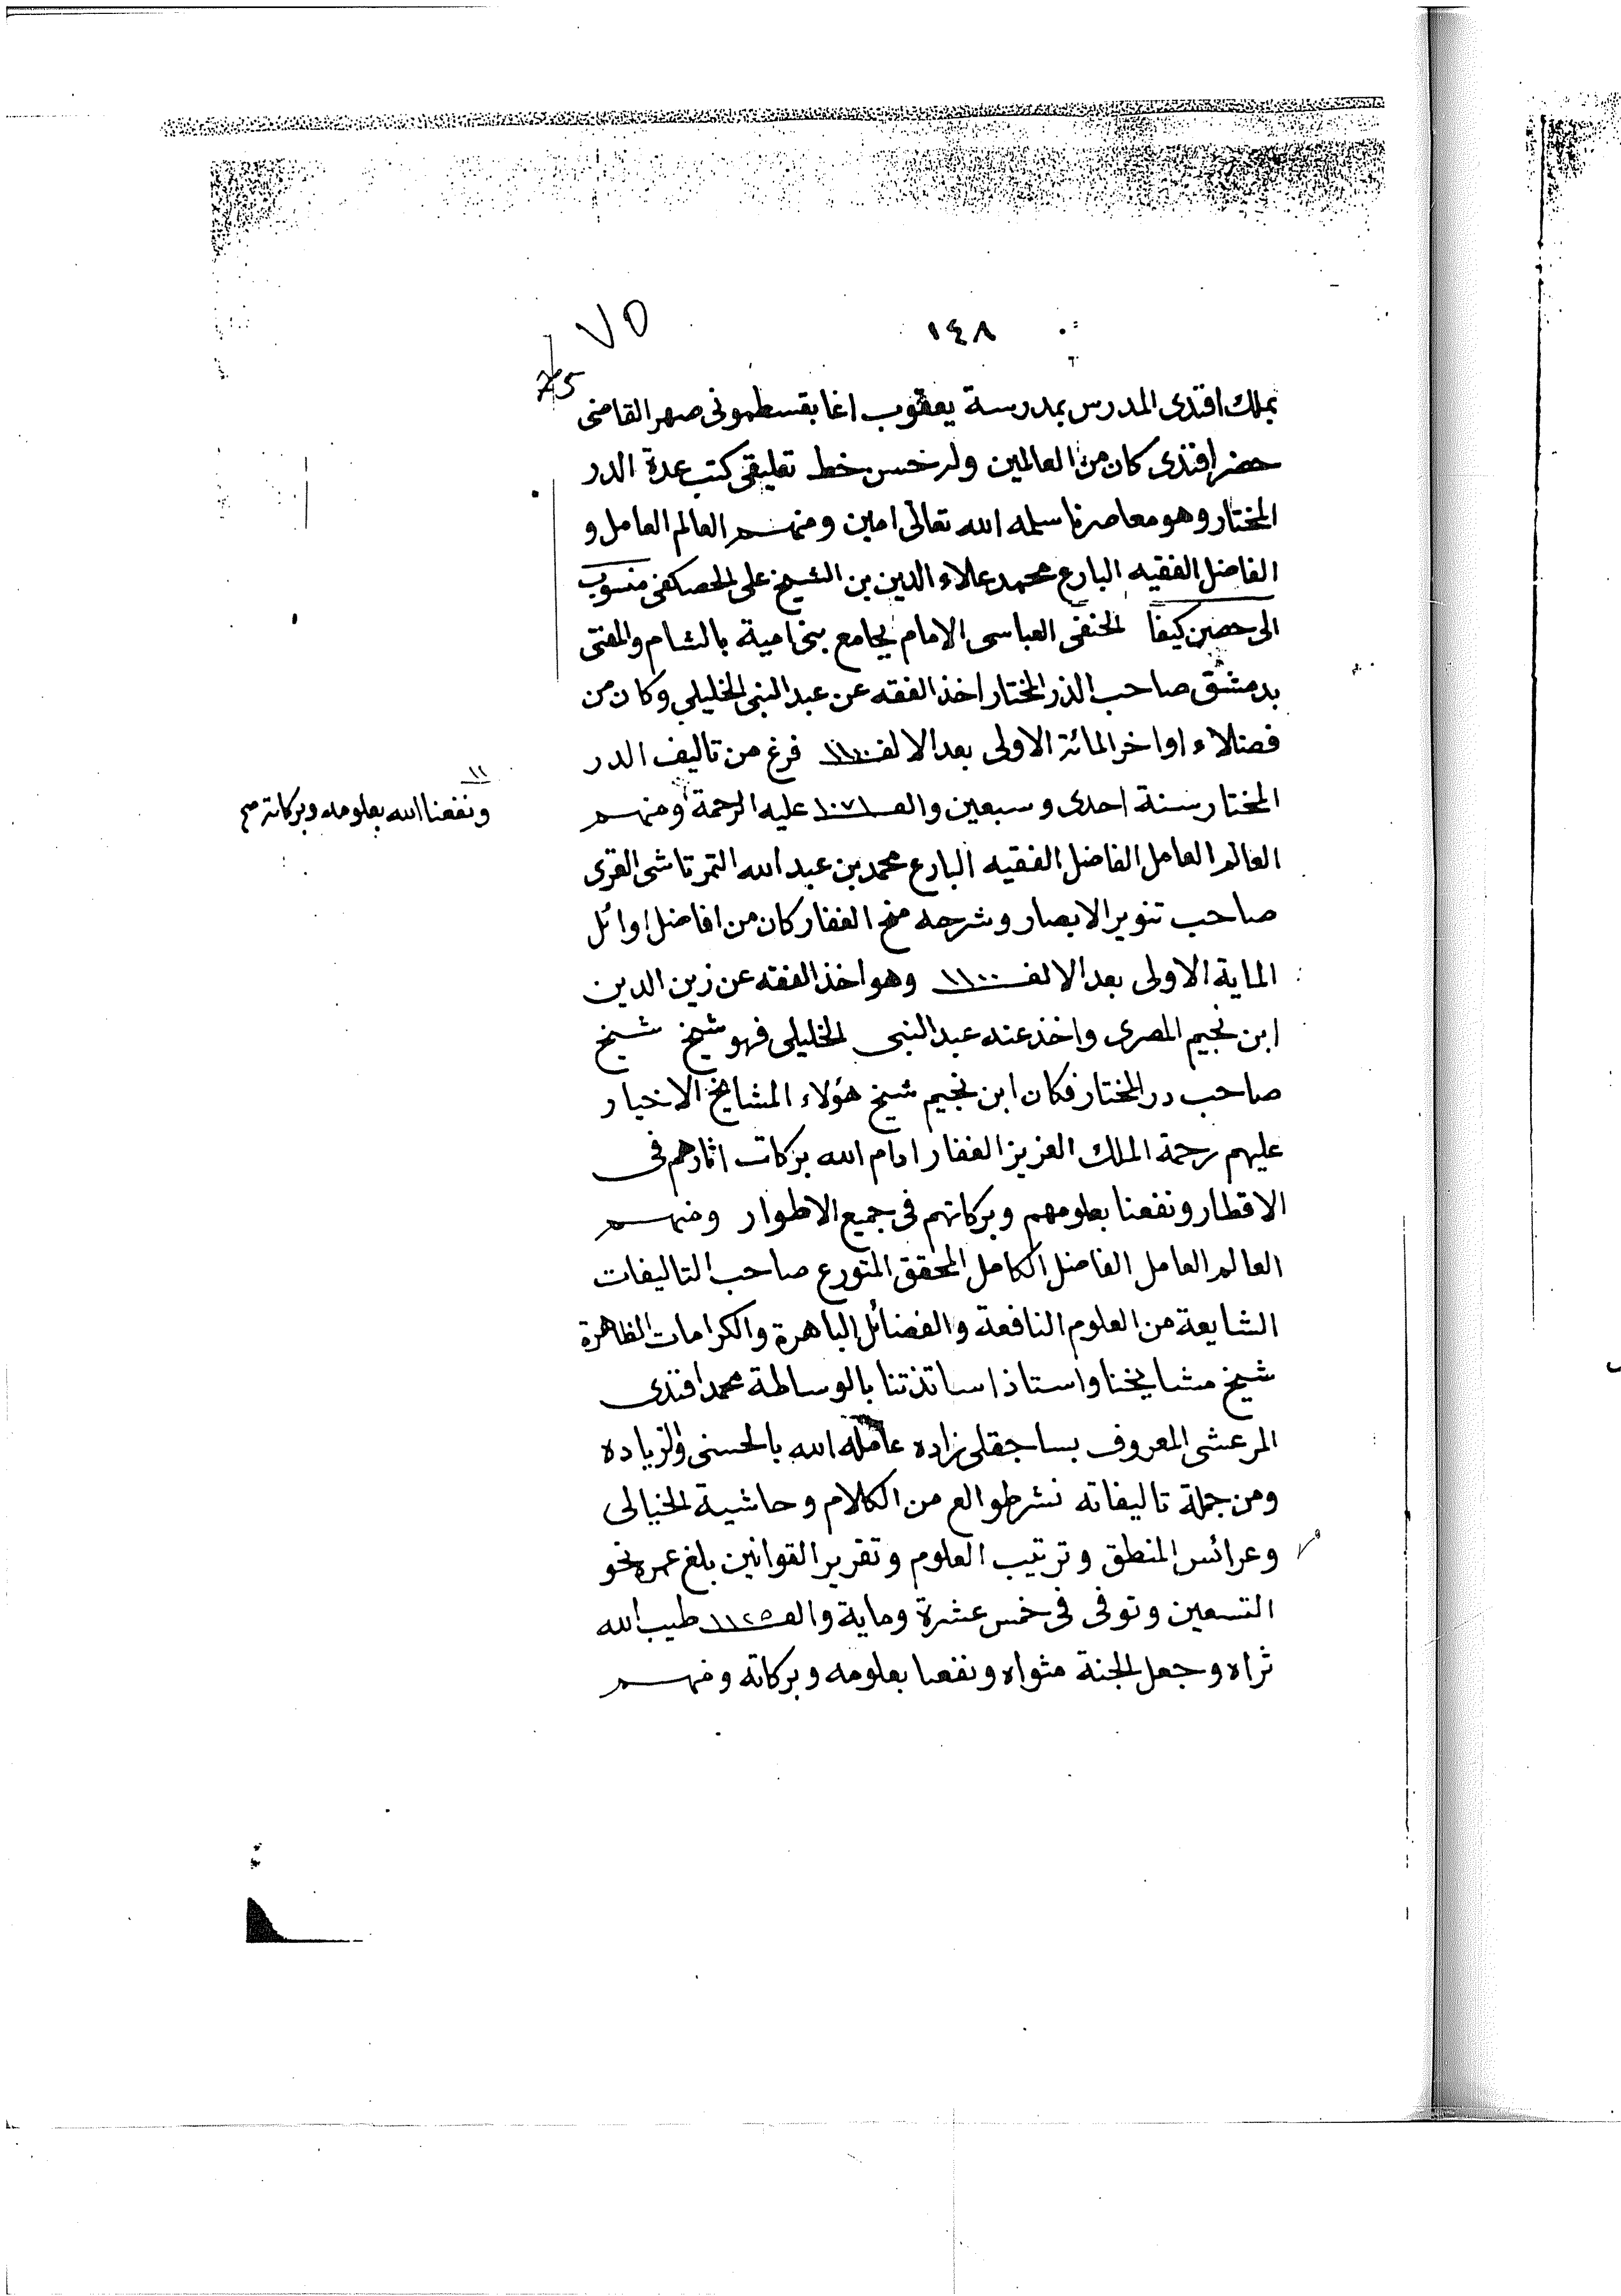 ٧٥
١٤٨
75
بملك افندى المدرس بمدرسة يعقوب اغا بقسطمونى صهر القاضى
حضر افندى كان من العالمين وله خسن خط تعليقى كتب عدة الدر
المختار وهو معاصرنا سلمه الله تعالى امين ومنهم العالم العامل و
الفاضل الفقيه البارع محمد علاء الدين بن الشيخ على الحصكفى منسوب
الى حصين كيفا الحنفى العباسى الامام بجامع بنى امية بالشام والمفتى
بدمشق صاحب الدر المختار اخذ الفقه عن عبد النبى الخليلى وكان من
فضلاء اواخر المائة الاولى بعد الالف ١١٠٠ فرغ من تاليف الدر
المختار سنة احدى وسبعين والف ١٠٧١ عليه الرحمة ومنهم
ونفعنا الله بعلومه وبركاته صح
العالم العامل الفاضل الفقيه البارع محمد بن عبد الله التمرتاشى الغزى
صاحب تنوير الابصار وشرحه منح الغفار كان من افاضل اوائل
الماية الاولى بعد الالف ١١٠٠ وهو اخذ الفقه عن زين الدين
ابن نجيم المصرى واخذ عنه عبد النبى الخليلى فهو شيخ شيخ
صاحب در المختار فكان ابن نجيم شيخ هؤلاء المشايخ الاخيار
عليهم رحمة الملك العزيز الغفار ادام الله بركات اثارهم فى
الاقطار ونفعنا بعلومهم وبركاتهم فى جميع الاطوار ومنهم
العالم العامل الفاضل الكامل المحقق المتورع صاحب التاليفات
الشايعة من العلوم النافعة والفضائل الباهرة والكرامات الظاهرة
شيخ مشايخنا واستاذ اساتذتنا بالوساطة محمد افندى
المرعشى المعروف بساجقلى زاده عامله الله بالحسنى والزياده
ومن جملة تاليفاته نشر طوالع من الكلام وحاشية الخيالى
وعرائس المنطق وترتيب العلوم وتقرير القوانين بلغ عمره نحو
التسعين وتوفى فى خمس عشرة وماية والف ١١٢٥ طيب الله
ثراه وجعل الجنة مثواه ونفعنا بعلومه وبركاته ومنهم